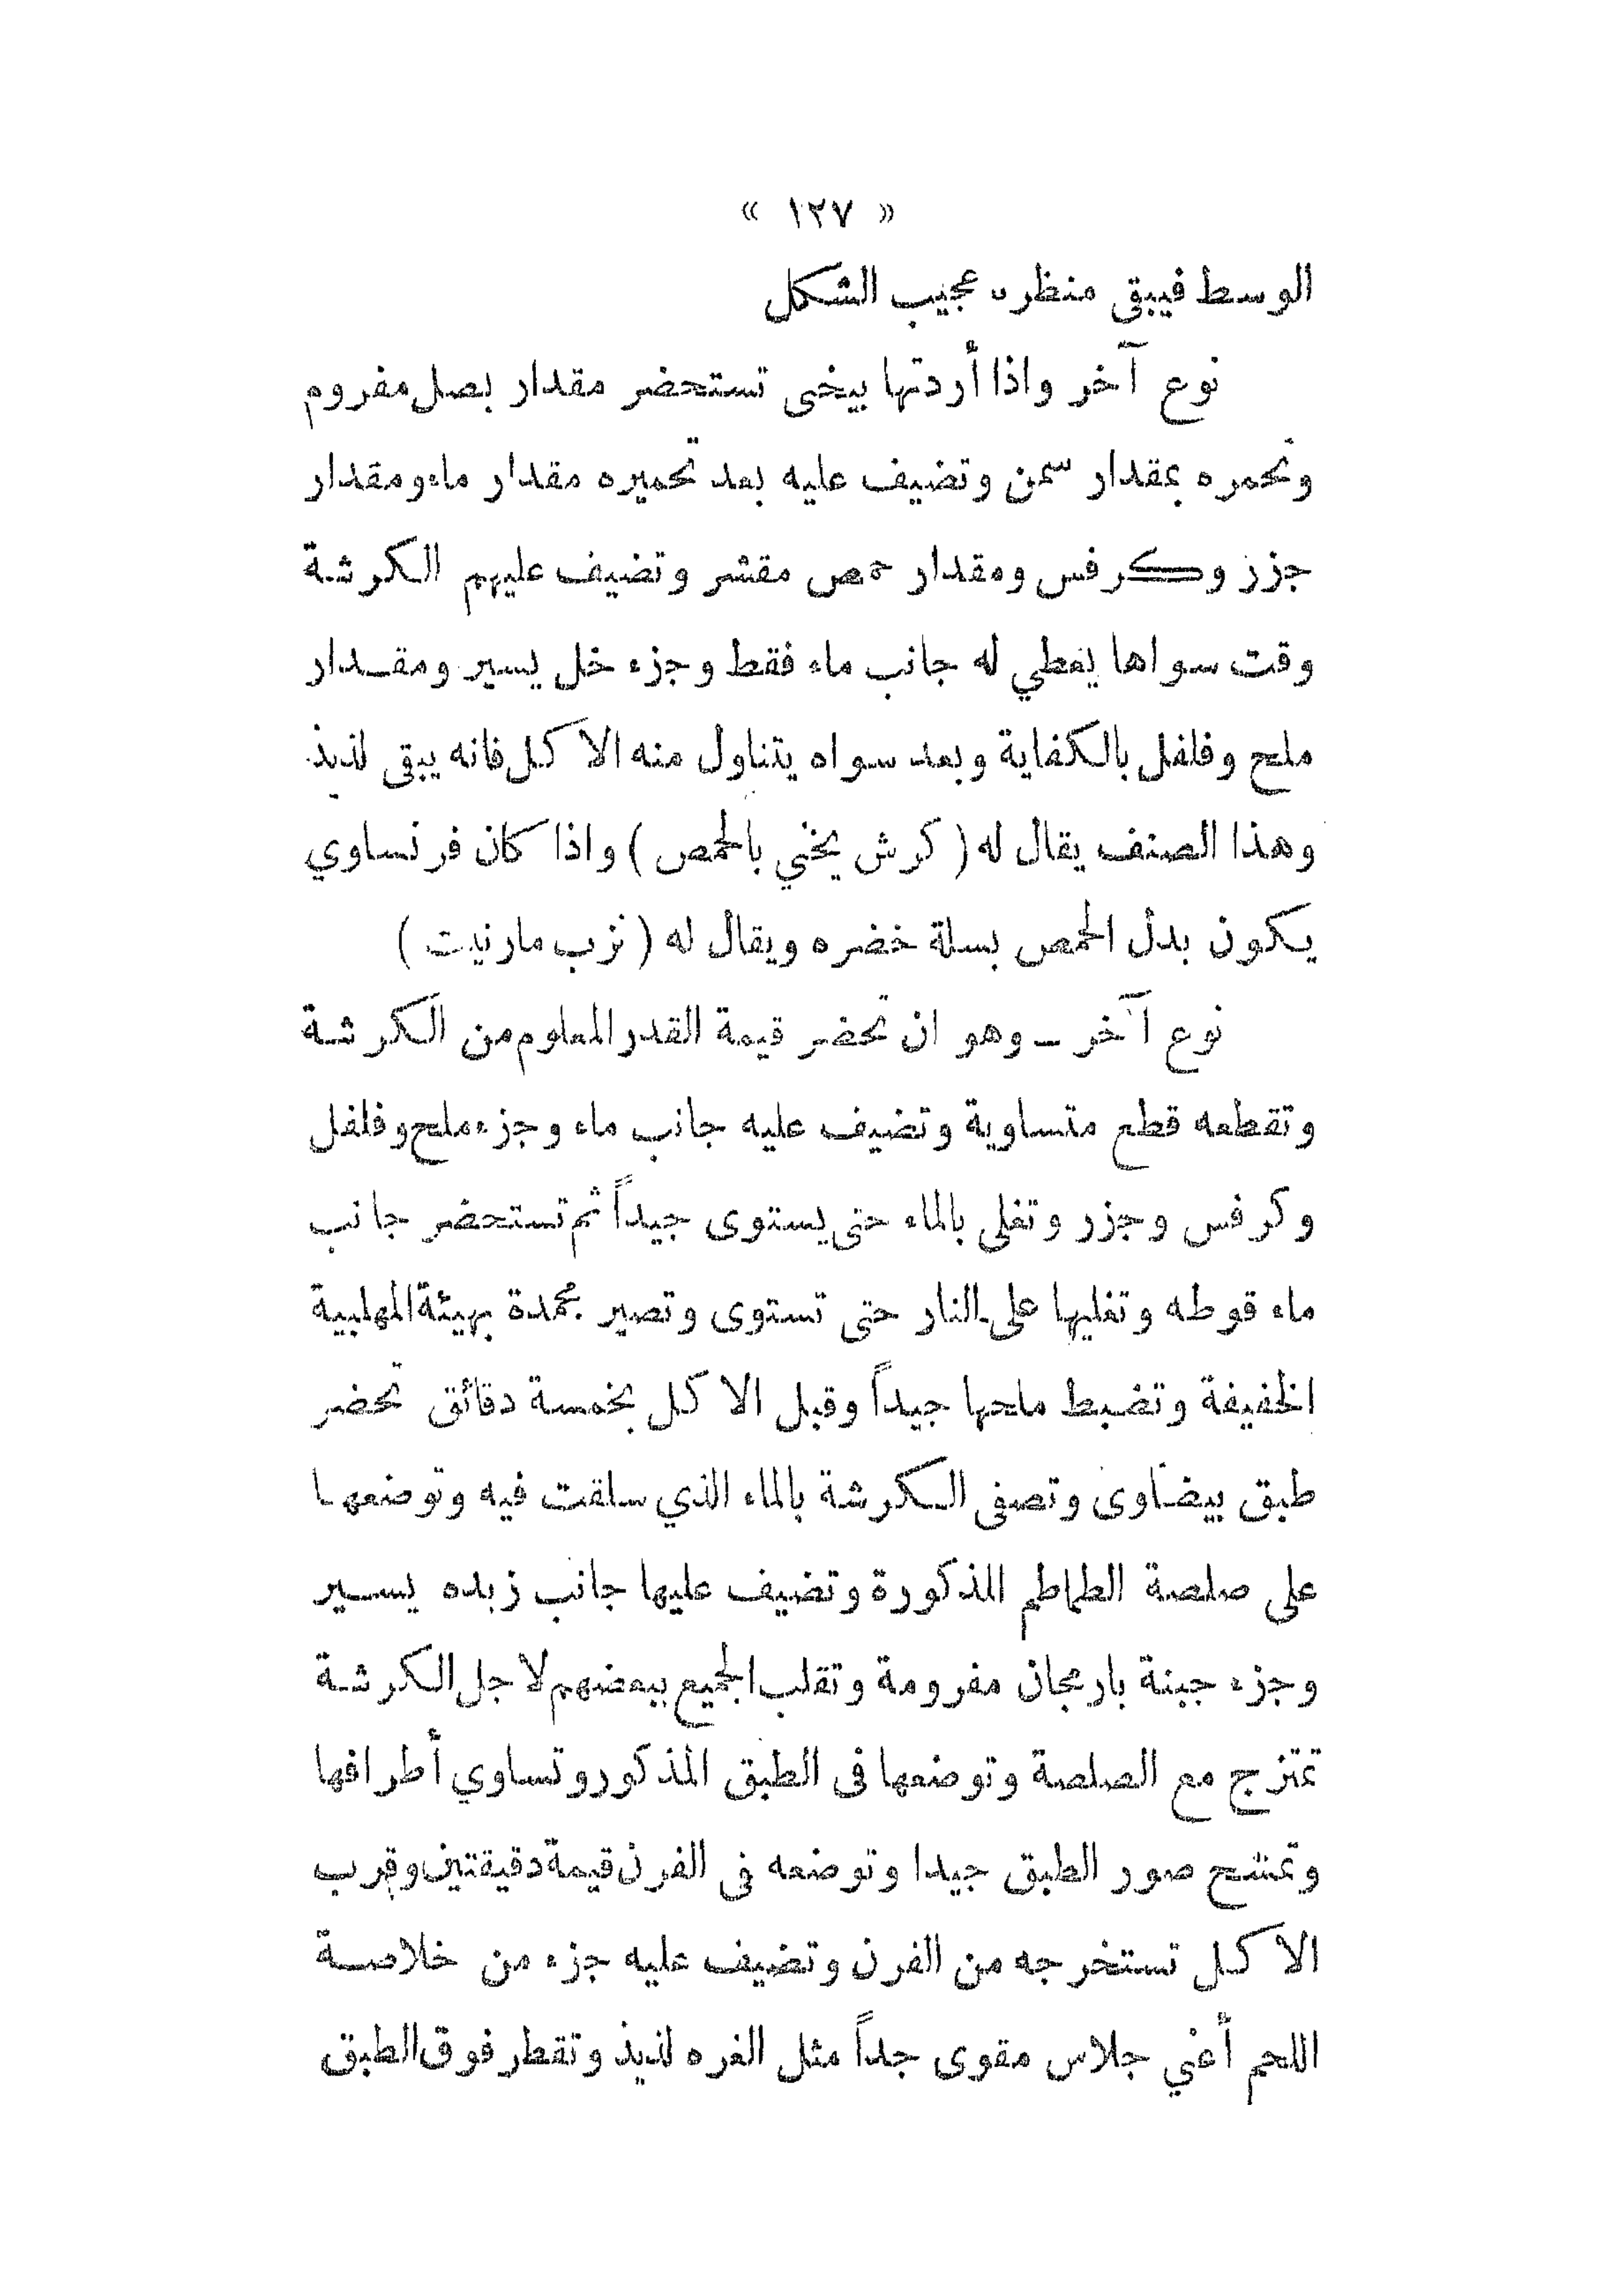 « ١٢٧ »
الوسط فيبقى منظره عجيب الشكل
نوع آخر واذا أردتها بيخى تستحضر مقدار بصل مفروم
وتحمره بمقدار سمن وتضيف عليه بعد تحميره مقدار ماء ومقدار
جزر وكرفس ومقدار حمص مقشر وتضيف عليهم الكرشة
وقت سواها يعطي له جانب ماء فقط وجزء خل يسير ومقدار
ملح وفلفل بالكفاية وبعد سواه يتناول منه الاكل فانه يبقى لذيذ
وهذا الصنف يقال له ( كرش يخني بالحمص ) واذا كان فرنساوي
يكون بدل الحمص بسلة خضره ويقال له ( نرب مارنيت )
نوع آخر ــ وهو ان تحضر قيمة القدر المعلوم من الكرشة
وتقطعه قطع متساوية وتضيف عليه جانب ماء وجزء ملح وفلفل
وكرفس وجزر وتغلى بالماء حتى يستوى جيداً ثم تستحضر جانب
ماء قوطه وتغليها على النار حتى تستوى وتصير مجمدة بهيئة المهلبية
الخفيفة وتضبط ملحها جيداً وقبل الاكل بخمسة دقائق تحضر
طبق بيضاوى وتصفى الكرشة بالماء الذي سلقت فيه وتوضعها
على صلصة الطماطم المذكورة وتضيف عليها جانب زبده يسير
وجزء جبنة بارمجان مفرومة وتقلب الجميع ببعضهم لاجل الكرشة
تمتزج مع الصلصة وتوضعها فى الطبق المذكور وتساوي أطرافها
وتمشح صور الطبق جيدا وتوضعه في الفرن قيمة دقيقتين وقرب
الاكل تستخرجه من الفرن وتضيف عليه جزء من خلاصة
اللحم أعني جلاس مقوى جداً مثل الغره لذيذ وتقطر فوق الطبق